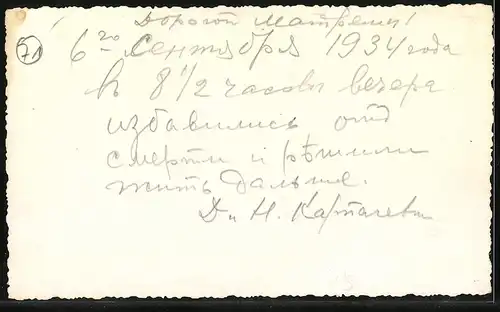 Дорогой Матреши!
71
6го Сентября 1934 года
в 8 1/2 часов вечера
избавились отъ
смерти и рѣшили
жить дальше.
Д и Н.